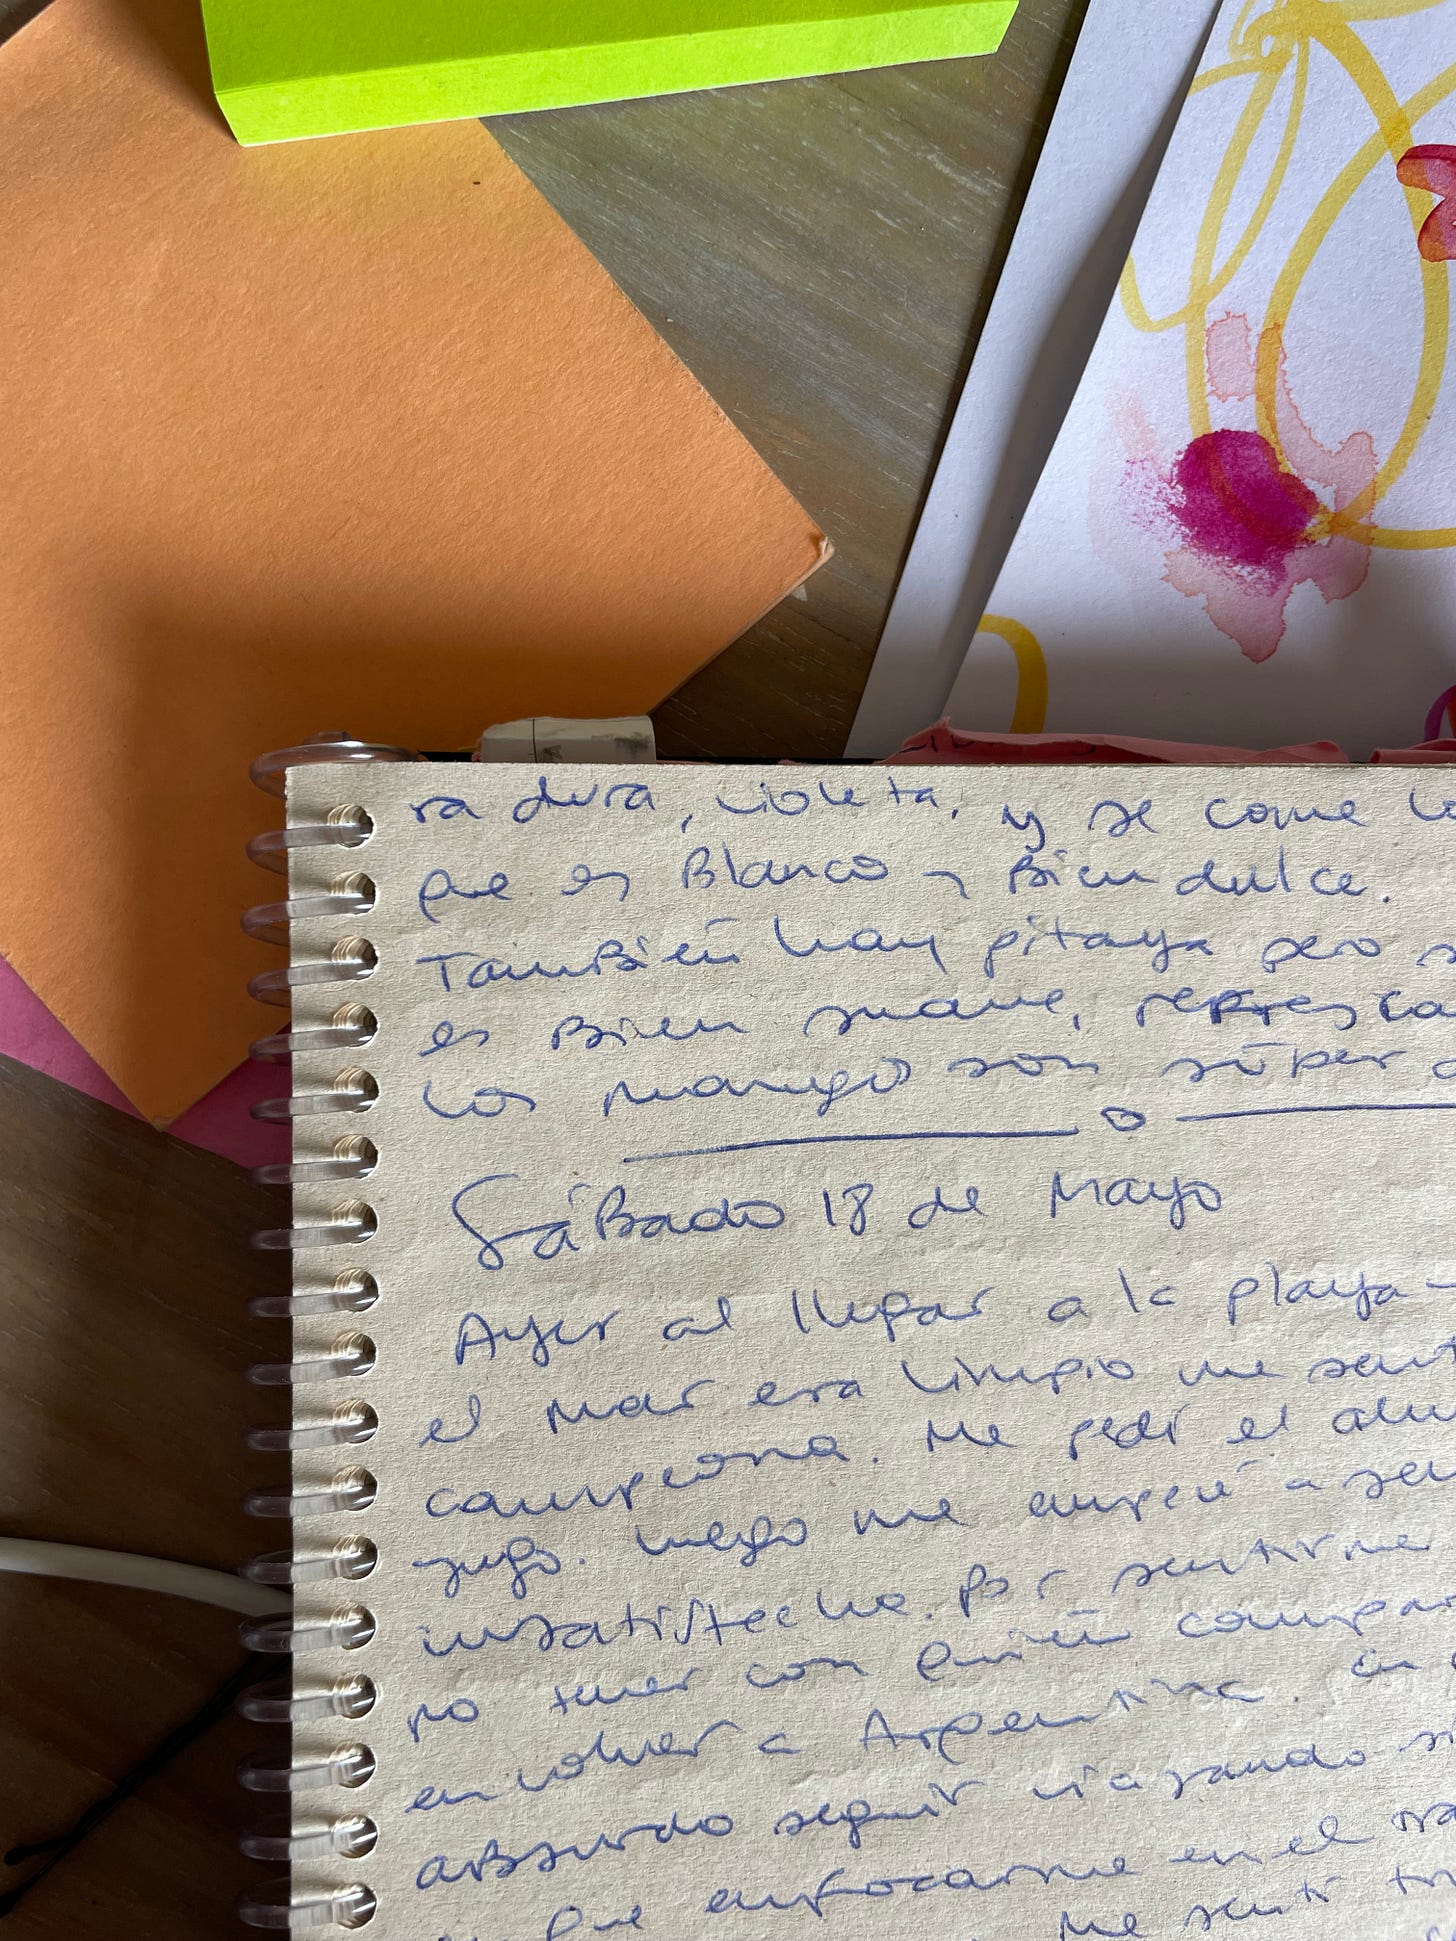 ra dura, violeta, y se come lo
que es Blanco y Bien dulce.
También hay pitaya pero s
es Bien suave, refresca
Los mango son súper d
Sábado 18 de Mayo
Ayer al llegar a la playa
el mar era limpio me sent
campeona. Me pedí el alm
jugo. Luego me empecé a sen
insatisfecha. Por sentirme
no tener con quién compar
en volver a Argentina. En
absurdo seguir viajando s
que enfocarme en el
Me sentí